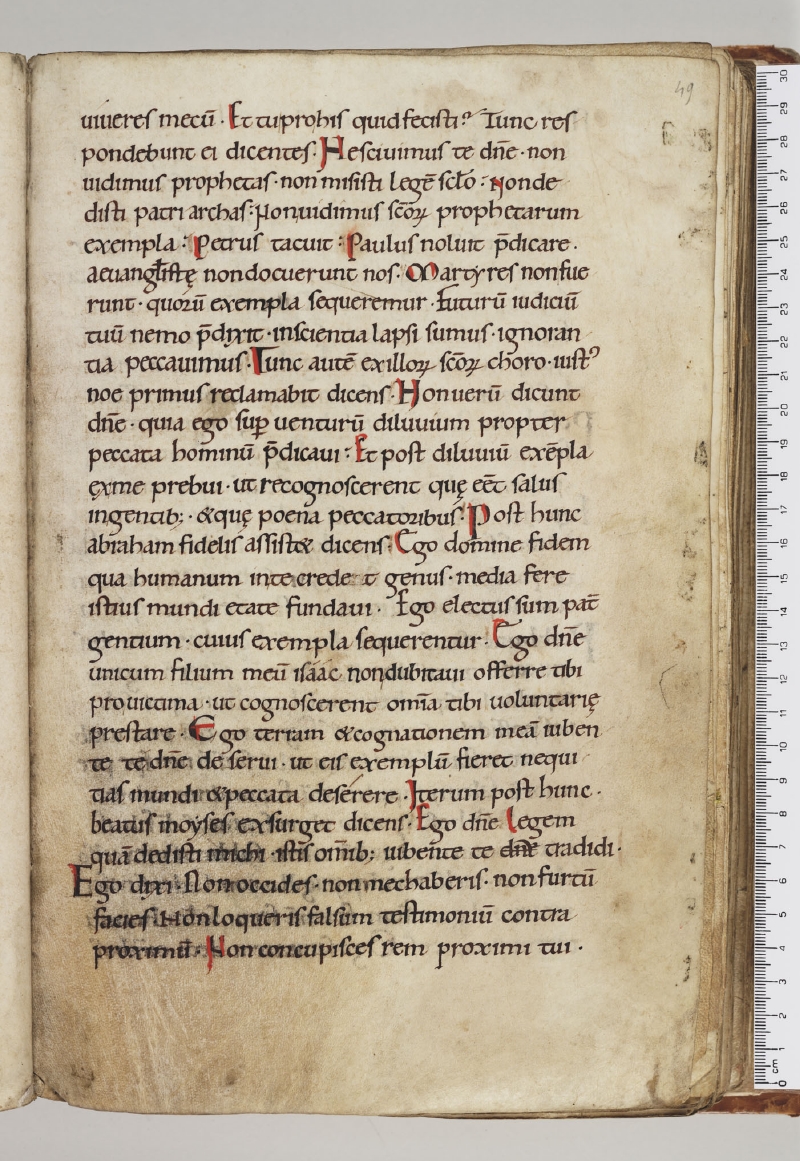 49
uiueres mecū · Et tu prohis quid fecisti? Tunc res
pondebunt ei dicentes · Nesciuimus te dn̄e · non
uidimus prophetas · non misisti legē sc̄lo · Nonde
disti patriarchas · Non uidimus sc̄oꝝ prophetarum
exempla · Petrus tacuit · Paulus noluit p̄dicare ·
aeuanglistę non docuerunt nos · Martyres non fue
runt · quorū exempla sequeremur · futurū iudiciū
tuū nemo p̄dixit · inscientia lapsi sumus · ignoran
tia peccauimus · Tunc autē ex illoꝝ sc̄oꝝ choro · iustꝰ
noe primus reclamabit dicens · Non uerū dicunt
dn̄e · quia ego suꝑ uenturū diluuium propter
peccata hominū p̄dicaui · Et post diluuiū exēpla
exme prebui · ut recognoscerent quę eēt salus
ingentib; · &quę poena peccatoribus · Post hunc
abraham fidelis assist& dicens · Ego domine fidem
qua humanum inte crede t genus · media fere
istius mundi etate fundaui · Ego electus sum pat̄
gentium · cuius exempla sequerentur · Ego dn̄e
unicum filium meū isaac non dubitaui offerre tibi
pro uictima · ut cognoscerent omīa tibi uoluntarię
prestare · Ego terram &cognationem meā iuben
te te dn̄e deserui · ut eis exemplū fieret nequi
tias mundi &peccata deserere · Iterum post hunc ·
beatus moyses exsurget dicens · Ego dn̄e legem
quā dedisti michi · istis om̄ib; uibente te dn̄e tradidi ·
Ego dixi · Non occides · non mechaberis · non furtū
facies · Non loqueris falsum testimoniū contra
proximū · Non concupisces rem proximi tui ·